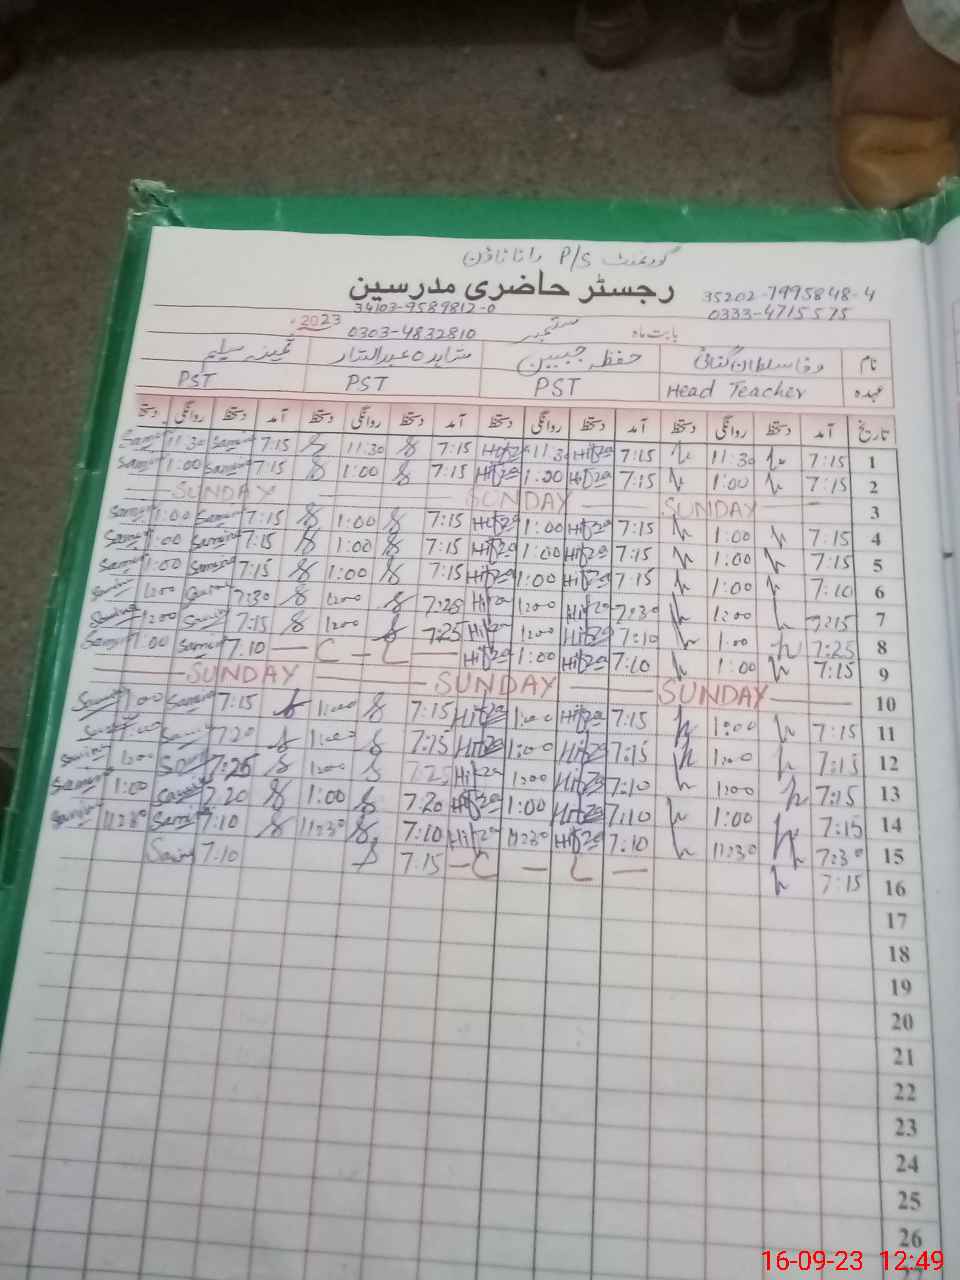 گورنمنٹ P/S رانا ٹاؤن
رجسٹر حاضری مدرسین
35202-7995848-4
34103-9589812-0
0333-4715575
بابت ماہ ستمبر 2023
0303-4832810
نام حفظہ جبین شاہدہ عبدالستار ثمینہ سلیم
عہدہ Head Teacher PST PST PST
تاریخ آمد دستخط روانگی دستخط آمد دستخط روانگی دستخط آمد دستخط روانگی دستخط آمد دستخط روانگی دستخط
1 7:15 11:30 7:15 Hifza 11:30 Hifza 7:15 11:30 7:15 Samin 11:30 Samin
2 7:15 1:00 7:15 Hifza 1:00 Hifza 7:15 1:00 7:15 Samin 1:00 Samin
3 SUNDAY SUNDAY SUNDAY
4 7:15 1:00 7:15 Hifza 1:00 Hifza 7:15 1:00 7:15 Samin 1:00 Samin
5 7:15 1:00 7:15 Hifza 1:00 Hifza 7:15 1:00 7:15 Samin 1:00 Samin
6 7:10 1:00 7:15 Hifza 1:00 Hifza 7:15 1:00 7:15 Samin 1:00 Samin
7 7:15 1:00 7:30 Hifza 1:00 Hifza 7:28 1:00 7:30 1:00
8 7:25 1:00 7:10 Hifza 1:00 Hifza 7:25 1:00 7:15 1:00
9 7:15 1:00 7:10 Hifza 1:00 Hifza — C — C — 7:10 Samin 1:00 Samin
10 SUNDAY SUNDAY SUNDAY
11 7:15 1:00 7:15 Hifza 1:00 Hifza 7:15 1:00 7:15 Samin 1:00
12 7:15 1:00 7:15 Hifza 1:00 Hifza 7:15 1:00 7:20 1:00
13 7:15 1:00 7:10 Hifza 1:00 Hifza 7:25 1:00 7:25 1:00
14 7:15 1:00 7:10 Hifza 1:00 Hifza 7:20 1:00 7:20 1:00
15 7:30 11:30 7:10 Hifza 11:30 Hifza 7:10 11:30 7:10 Samin 11:30
16 7:15 — C — C — 7:15 7:10
17
18
19
20
21
22
23
24
25
26
16-09-23 12:49